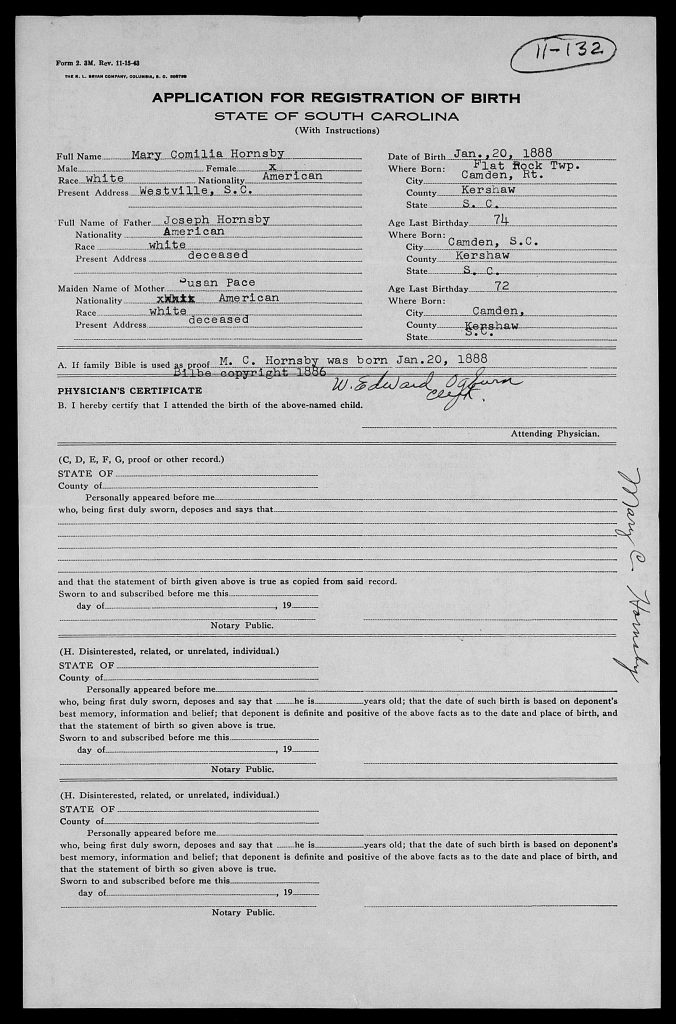 11-132
Form 2. 3M. Rev. 11-15-43
THE R. L. BRYAN COMPANY, COLUMBIA, S. C.
APPLICATION FOR REGISTRATION OF BIRTH
STATE OF SOUTH CAROLINA
(With Instructions)
Full Name Mary Comilia Hornsby
Male Female X
Race white Nationality American
Present Address Westville, S.C.
Date of Birth Jan.,20, 1888
Where Born: Flat Rock Twp.
City Camden, Rt.
County Kershaw
State S. C.
Full Name of Father Joseph Hornsby
Nationality American
Race white
Present Address deceased
Age Last Birthday 74
Where Born:
City Camden, S.C.
County Kershaw
State S. C.
Maiden Name of Mother Susan Pace
Nationality American
Race white
Present Address deceased
Age Last Birthday 72
Where Born:
City Camden,
County Kershaw
State S.C.
A. If family Bible is used as proof M. C. Hornsby was born Jan.20, 1888
Bilbe copyright 1886
W. Edward Ogburn
Clerk.
PHYSICIAN'S CERTIFICATE
B. I hereby certify that I attended the birth of the above-named child.
Attending Physician.
(C, D, E, F, G, proof or other record.)
STATE OF
County of
Personally appeared before me
who, being first duly sworn, deposes and says that
and that the statement of birth given above is true as copied from said record.
Sworn to and subscribed before me this
day of , 19
Notary Public.
Mary C. Hornsby
(H. Disinterested, related, or unrelated, individual.)
STATE OF
County of
Personally appeared before me
who, being first duly sworn, deposes and say that he is years old; that the date of such birth is based on deponent's
best memory, information and belief; that deponent is definite and positive of the above facts as to the date and place of birth, and
that the statement of birth so given above is true.
Sworn to and subscribed before me this
day of , 19
Notary Public.
(H. Disinterested, related, or unrelated, individual.)
STATE OF
County of
Personally appeared before me
who, being first duly sworn, deposes and say that he is years old; that the date of such birth is based on deponent's
best memory, information and belief; that deponent is definite and positive of the above facts as to the date and place of birth, and
that the statement of birth so given above is true.
Sworn to and subscribed before me this
day of , 19
Notary Public.